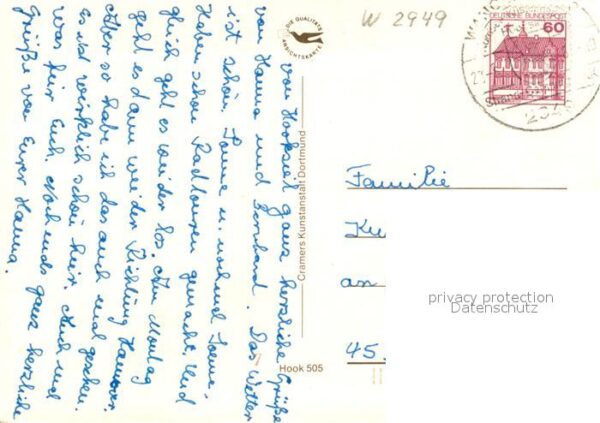 von Hooksiel ganz herzliche Grüße
von Hanna und Bernhard. Das Wetter
ist schön, Sonne u. nochmal Sonne.
Haben schon Radtouren gemacht. Und
gleich geht es wieder los. Am Montag
geht es dann wieder Richtung Hannover.
Aber so habe ich das auch mal gesehen.
Es ist wirklich schön hier. Auch mal
was für Euch. Nochmals ganz herzliche
Grüße von Eurer Hanna.
DIE QUALITÄTS
ANSICHTSKARTE
Cramers Kunstanstalt Dortmund
Hook 505
W 2949
DEUTSCHE BUNDESPOST
60
Familie
an
45
privacy protection
Datenschutz